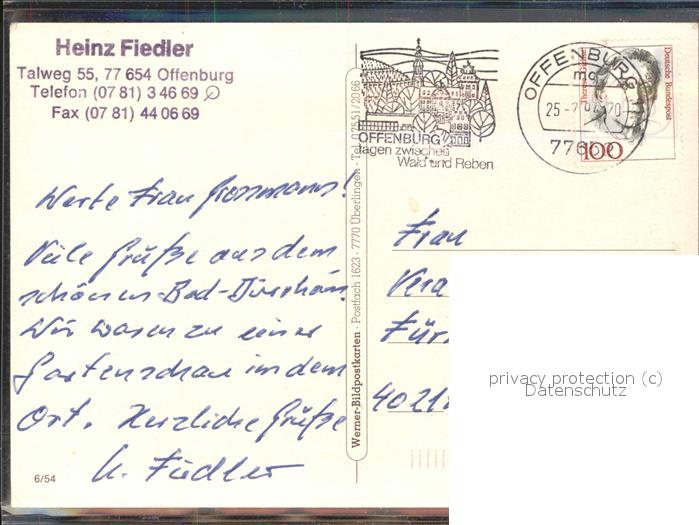 Heinz Fiedler
Talweg 55, 77 654 Offenburg
Telefon (07 81) 3 46 69
Fax (07 81) 44 06 69
OFFENBURG
tagen zwischen
Wald und Reben
OFFENBURG
mc
25.-
20
7765
Deutsche Bundespost
100
Werte Frau Grossmann!
Viele Grüße aus dem
schönen Bad-Dürrheim.
Wir waren zu einer
Gartenschau in dem
Ort. Herzliche Grüße
H. Fiedler
6/54
Werner-Bildpostkarten · Postfach 1623 · 7770 Überlingen · Tel. 07551/2066
Frau
Vera
Für
4021
privacy protection (c)
Datenschutz